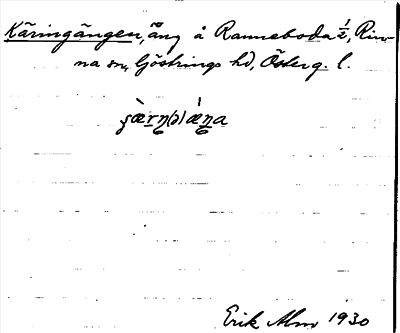 Käringängen, äng å Ranneboda ½, Rin-
na sn, Göstrings hd, Österg. l.
Erik Alm 1930